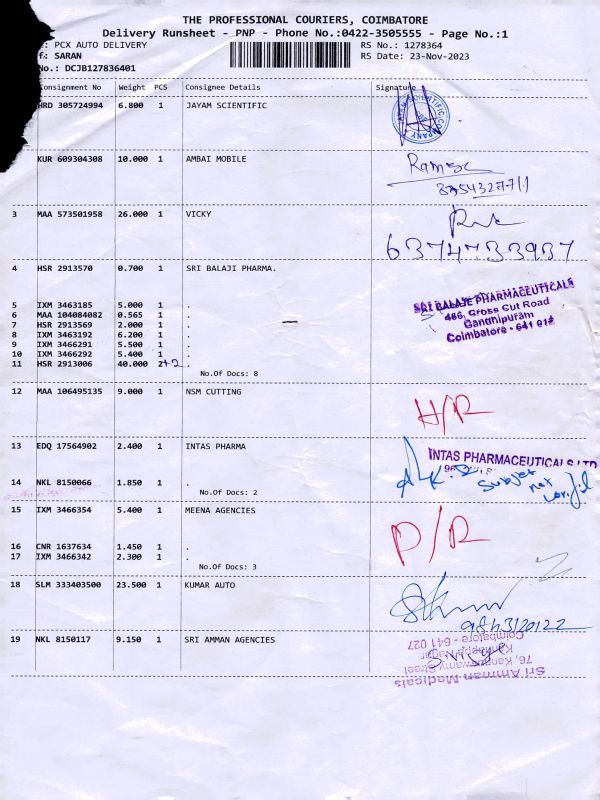 THE PROFESSIONAL COURIERS, COIMBATORE
Delivery Runsheet - PNP - Phone No.:0422-3505555 - Page No.:1
: PCX AUTO DELIVERY RS No.: 1278364
f.: SARAN RS Date: 23-Nov-2023
No.: DCJB127836401
Consignment No Weight PCS Consignee Details Signature
HRD 305724994 6.800 1 JAYAM SCIENTIFIC
KUR 609304308 10.000 1 AMBAI MOBILE
3 MAA 573501958 26.000 1 VICKY
6374733937
4 HSR 2913570 0.700 1 SRI BALAJI PHARMA.
SRI BALAJE PHARMACEUTICALS
466, Cross Cut Road
Gandhipuram
Coimbatore - 641 012
5 IXM 3463185 5.000 1 .
6 MAA 104084082 0.565 1 .
7 HSR 2913569 2.000 1 .
8 IXM 3463192 6.200 1 .
9 IXM 3466291 5.500 1 .
10 IXM 3466292 5.400 1 .
11 HSR 2913006 40.000 2 .
No.Of Docs: 8
12 MAA 106495135 9.000 1 NSM CUTTING
H/R
13 EDQ 17564902 2.400 1 INTAS PHARMA
INTAS PHARMACEUTICALS LTD
Subject
not
14 NKL 8150066 1.850 1 .
No.Of Docs: 2
15 IXM 3466354 5.400 1 MEENA AGENCIES
P/R
16 CNR 1637634 1.450 1 .
17 IXM 3466342 2.300 1 .
No.Of Docs: 3
18 SLM 333403500 23.500 1 KUMAR AUTO
19 NKL 8150117 9.150 1 SRI AMMAN AGENCIES
Sri Amman Medicals
76, Kannuswamy Street
Coimbatore - 641 027